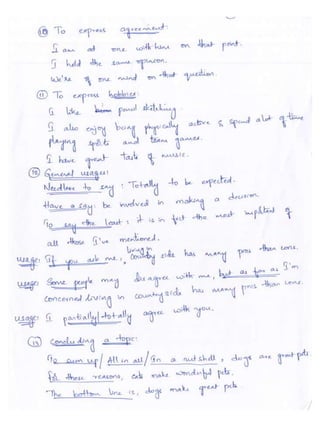 (10) To express agreement:
I am at one with him on that point.
I hold the same opinion.
We're of one mind on that question.
(11) To express hobbies:
I like pencil sketching.
I also enjoy being physically active & spend a lot of time
playing sports and team games.
I have great taste of music.
General usages:
Needless to say: Totally to be expected.
Have a say: be involved in making a decision
To say the least: it is in fact the most important of
all those I've mentioned.
usage: If you ask me, living in country side has many pros than cons.
usage: Some people may disagree with me, but as far as I'm
concerned living in countryside has many pros than cons.
usage: I partially/totally agree with you.
(13) Concluding a topic:
To sum up/ All in all/ In a nutshell, dogs are great pets.
for these reasons, cats make wonderful pets.
The bottom line is, dogs make great pets.